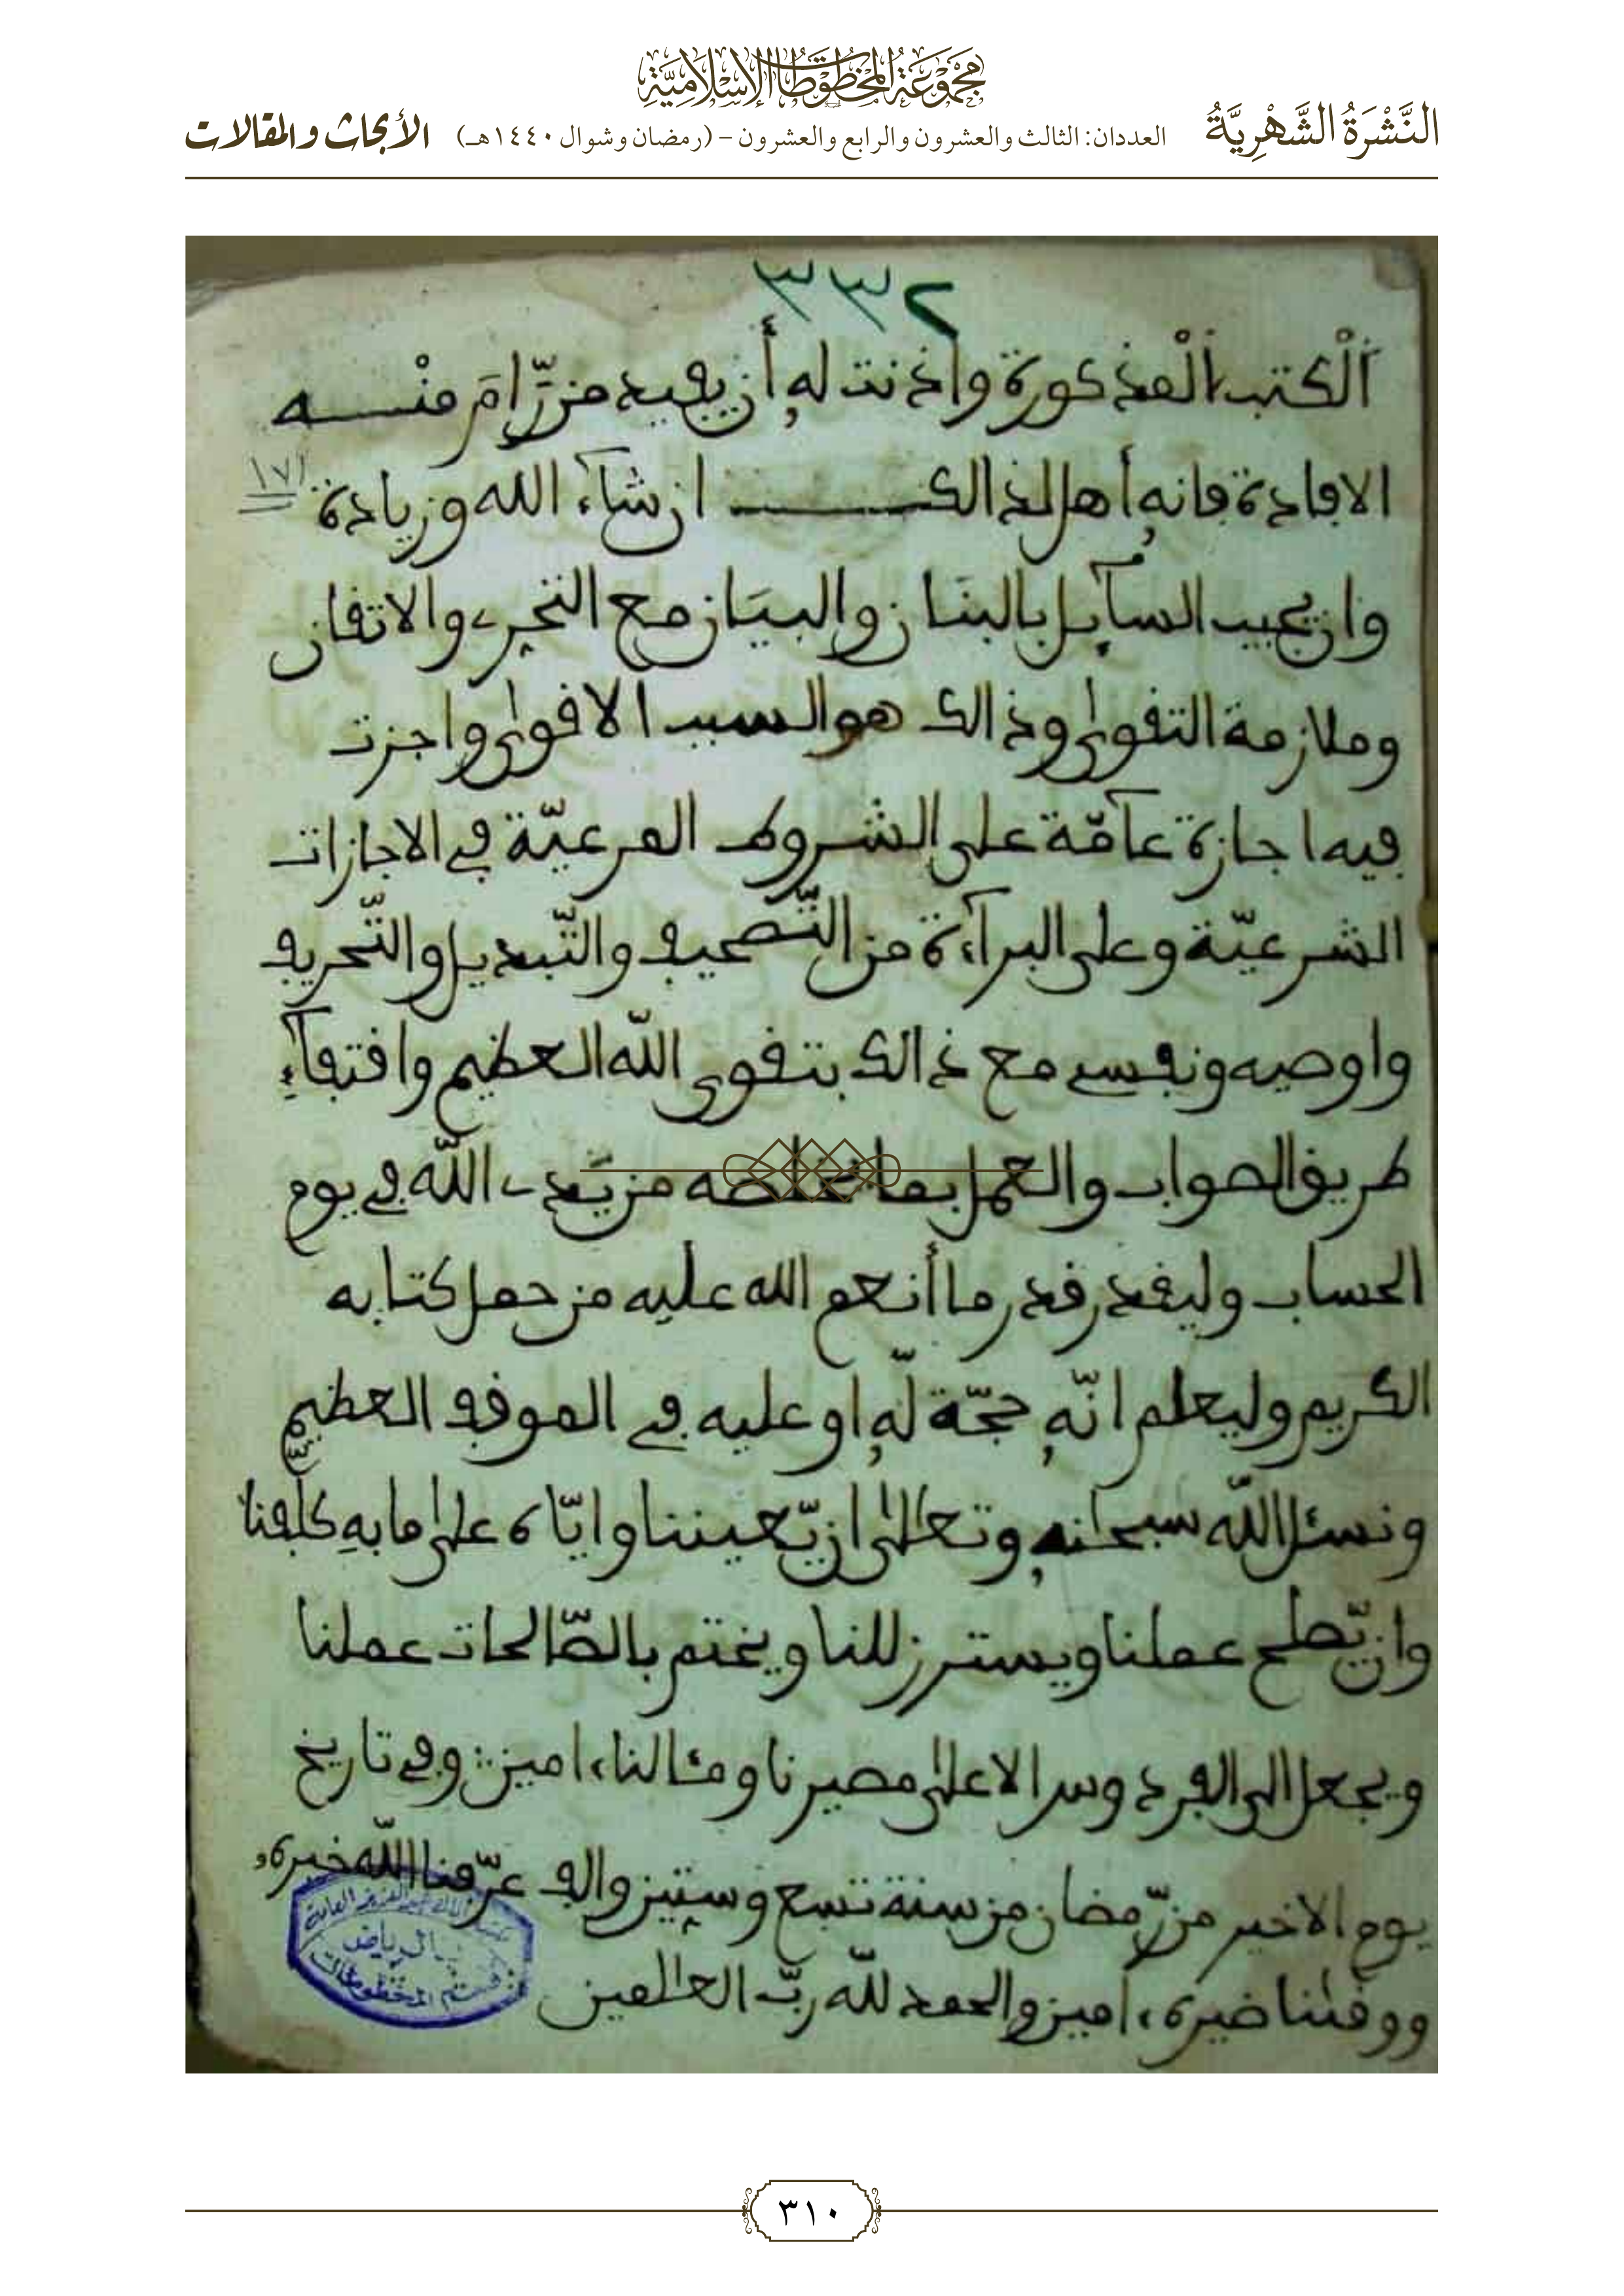 مجموعة المخطوطات الإسلامية
النَّشْرَةُ الشَّهْرِيَّةُ
العددان: الثالث والعشرون والرابع والعشرون – (رمضان وشوال ١٤٤٠هـ)
الأبحاث والمقالات
٣٣٢
ألكتب ألمذكورة واذنت له أن يفيد من رّام منـــه
الافادة فانه أهل لذالكــــ ان شآء الله وزيادة
١٧١
وان يجيب السآيل بالبنان والبيان مع التحرى والاتقان
وملازمة التقوى وذالك هو السبب الاقوى واجزت
فيه اجازة عآمّة على الشروط المرعيّة في الاجازات
الشرعيّة وعلى البرآءة من التّصحيف والتّبديل والتّحريف
واوصيه ونفسي مع ذالك بتقوى اللّه العظيم واقتفآء
طريق الصواب والعمل بما يخلصه من يّدى اللّه في يوم
الحساب وليقدر قدر ما أنعم الله عليه من حمل كتابه
الكريم وليعلم انّه حجّة لّه او عليه في الموقف العظيم
ونسئل اللّه سبحانه وتعالى ان يّعيننا وايّاه على ما به كلّفنا
وان يّصلح عملنا ويستر زللنا ويختم بالصّالحات عملنا
ويجعل الى الفردوس الاعلى مصيرنا ومئالنا، امين وفي تاريخ
يوم الاخير من رّمضان من سنة تسع وستين والف عرّفنا اللّه خيره
ووقنا ضيره، امين والحمد للّه ربّ العالمين
بالرياض
قسم المخطوطات
٣١٠